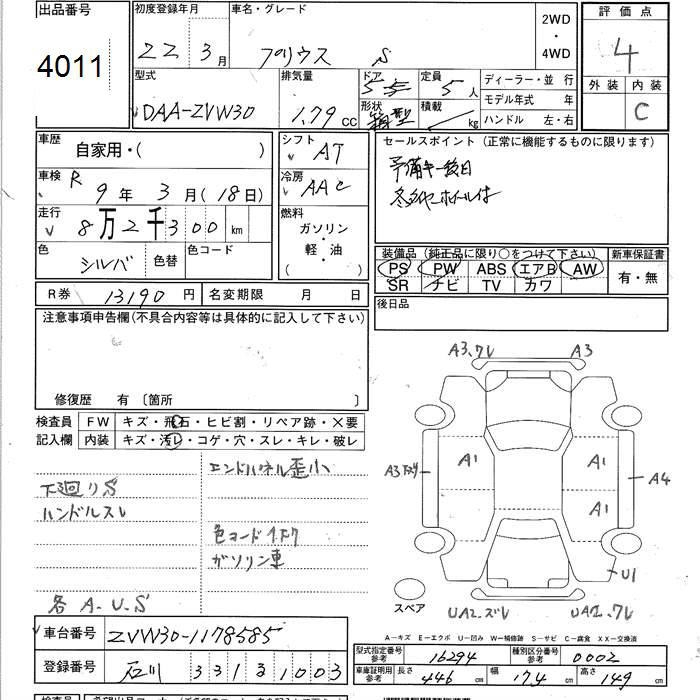 出品番号 初度登録年月 車名・グレード 2WD・4WD 評価点
4011 22 3月 プリウス S 4
型式 排気量 ドア 定員 ディーラー・並行 外装 内装
DAA-ZVW30 1.79 cc 5 5人 モデル年式 年 C
形状 箱型 積載 kg ハンドル 左・右
車歴 自家用・( ) シフト AT セールスポイント (正常に機能するものに限ります)
車検 R 9年 3月 (18日) 冷房 AAC 予備キー後日
冬タイヤホイール付
走行 8万2千300 km 燃料 ガソリン・軽・油 ( )
色 シルバ 色替 色コード
装備品 (純正品に限り○をつけて下さい) 新車保証書
PS PW ABS エアB AW 有・無
SR ナビ TV カワ
R券 13190円 名変期限 月 日 後日品
注意事項申告欄(不具合内容等は具体的に記入して下さい)
修復歴 有 〔箇所 〕
検査員 FW キズ・飛石・ヒビ割・リペア跡・×要
記入欄 内装 キズ・汚レ・コゲ・穴・スレ・キレ・破レ
エンドパネル歪小
下廻りS
ハンドルスレ
色コード1F7
ガソリン車
各A.U.S
A3、ワレ A3
A1 A1
A3 A4
A1
U1
スペア
UA2-ズレ UA2、ワレ
A-キズ E-エクボ U-凹み W-補修跡 S-サビ C-腐食 XX-交換済
車台番号 ZVW30-1178585
型式指定番号 参考 16294 種別区分番号 参考 0002
登録番号 石川 331る1003
車両寸法 参考 長さ 446 cm 幅 174 cm 高さ 149